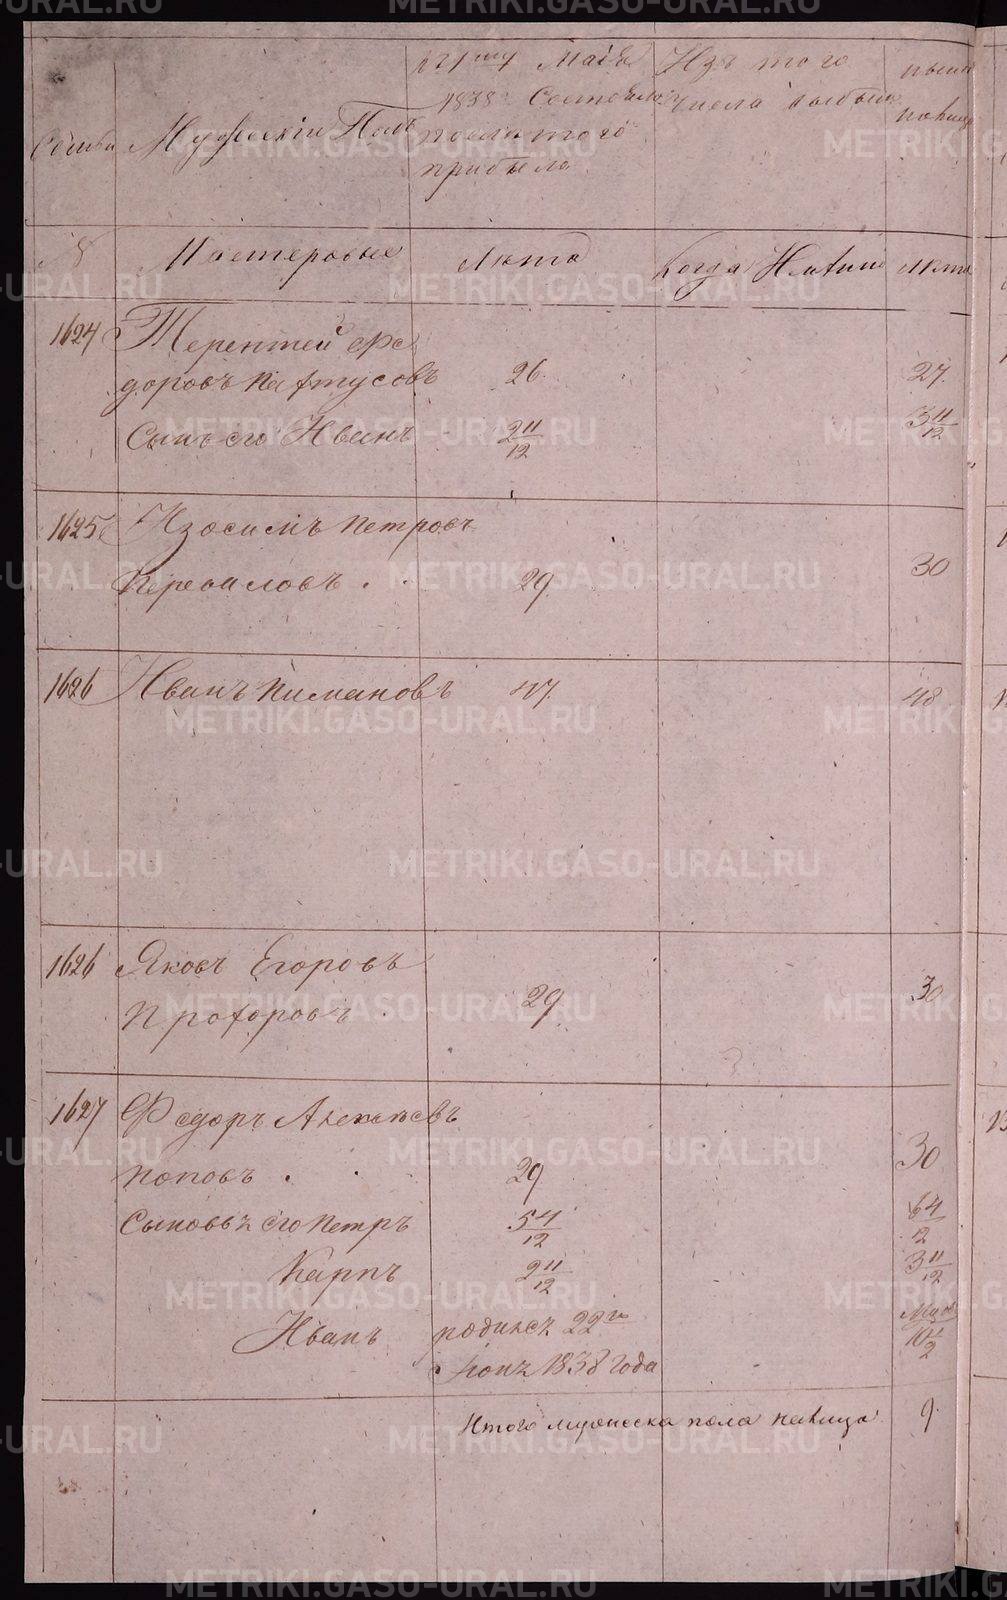 Семьи
Мужескій Полъ
къ 1му Маія
1838 Состояло
послѣ того
прибыло
Изъ того
числа выбыло
нынѣ
налицо
№
Мастеровые
Лѣта
Когда Имянно
Лѣта
1624 Терентей Фе
доровъ 26 27
Сынъ его Иванъ 2 11/12 3 11/12
1625 Изосимъ Петровъ
Переваловъ 29 30
1626 Иванъ Пимановъ 47 48
1626 Яковъ Егоровъ
Прохоровъ 29 30
1627 Федоръ Алексѣевъ
Поповъ 29 30
Сыновья его Петръ 5 4/12 6 4/12
Карпъ 2 11/12 3 11/12
Иванъ родился 22го
1838 года
Итого мужеска пола налицо 9
METRIKI.GASO-URAL.RU